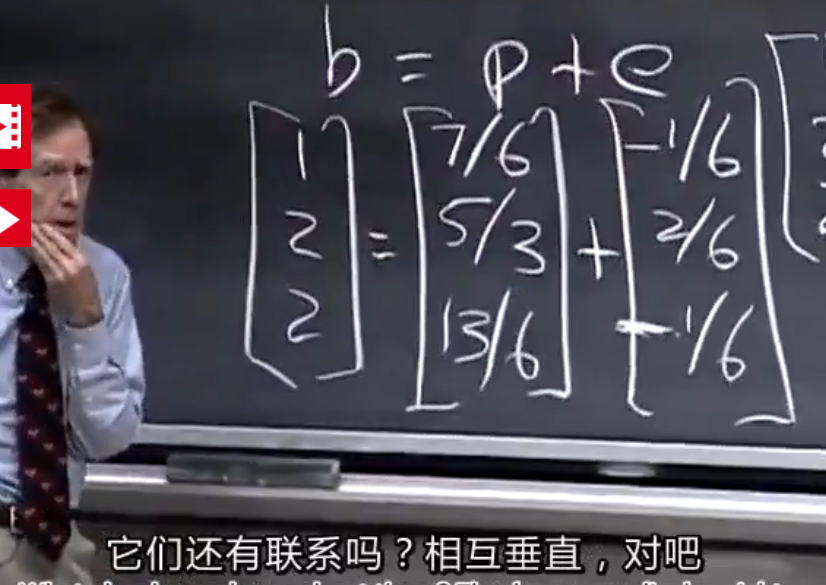 b = p + e
[1 2 2] = [7/6 5/3 13/6] + [-1/6 2/6 -1/6]
它们还有联系吗？相互垂直，对吧